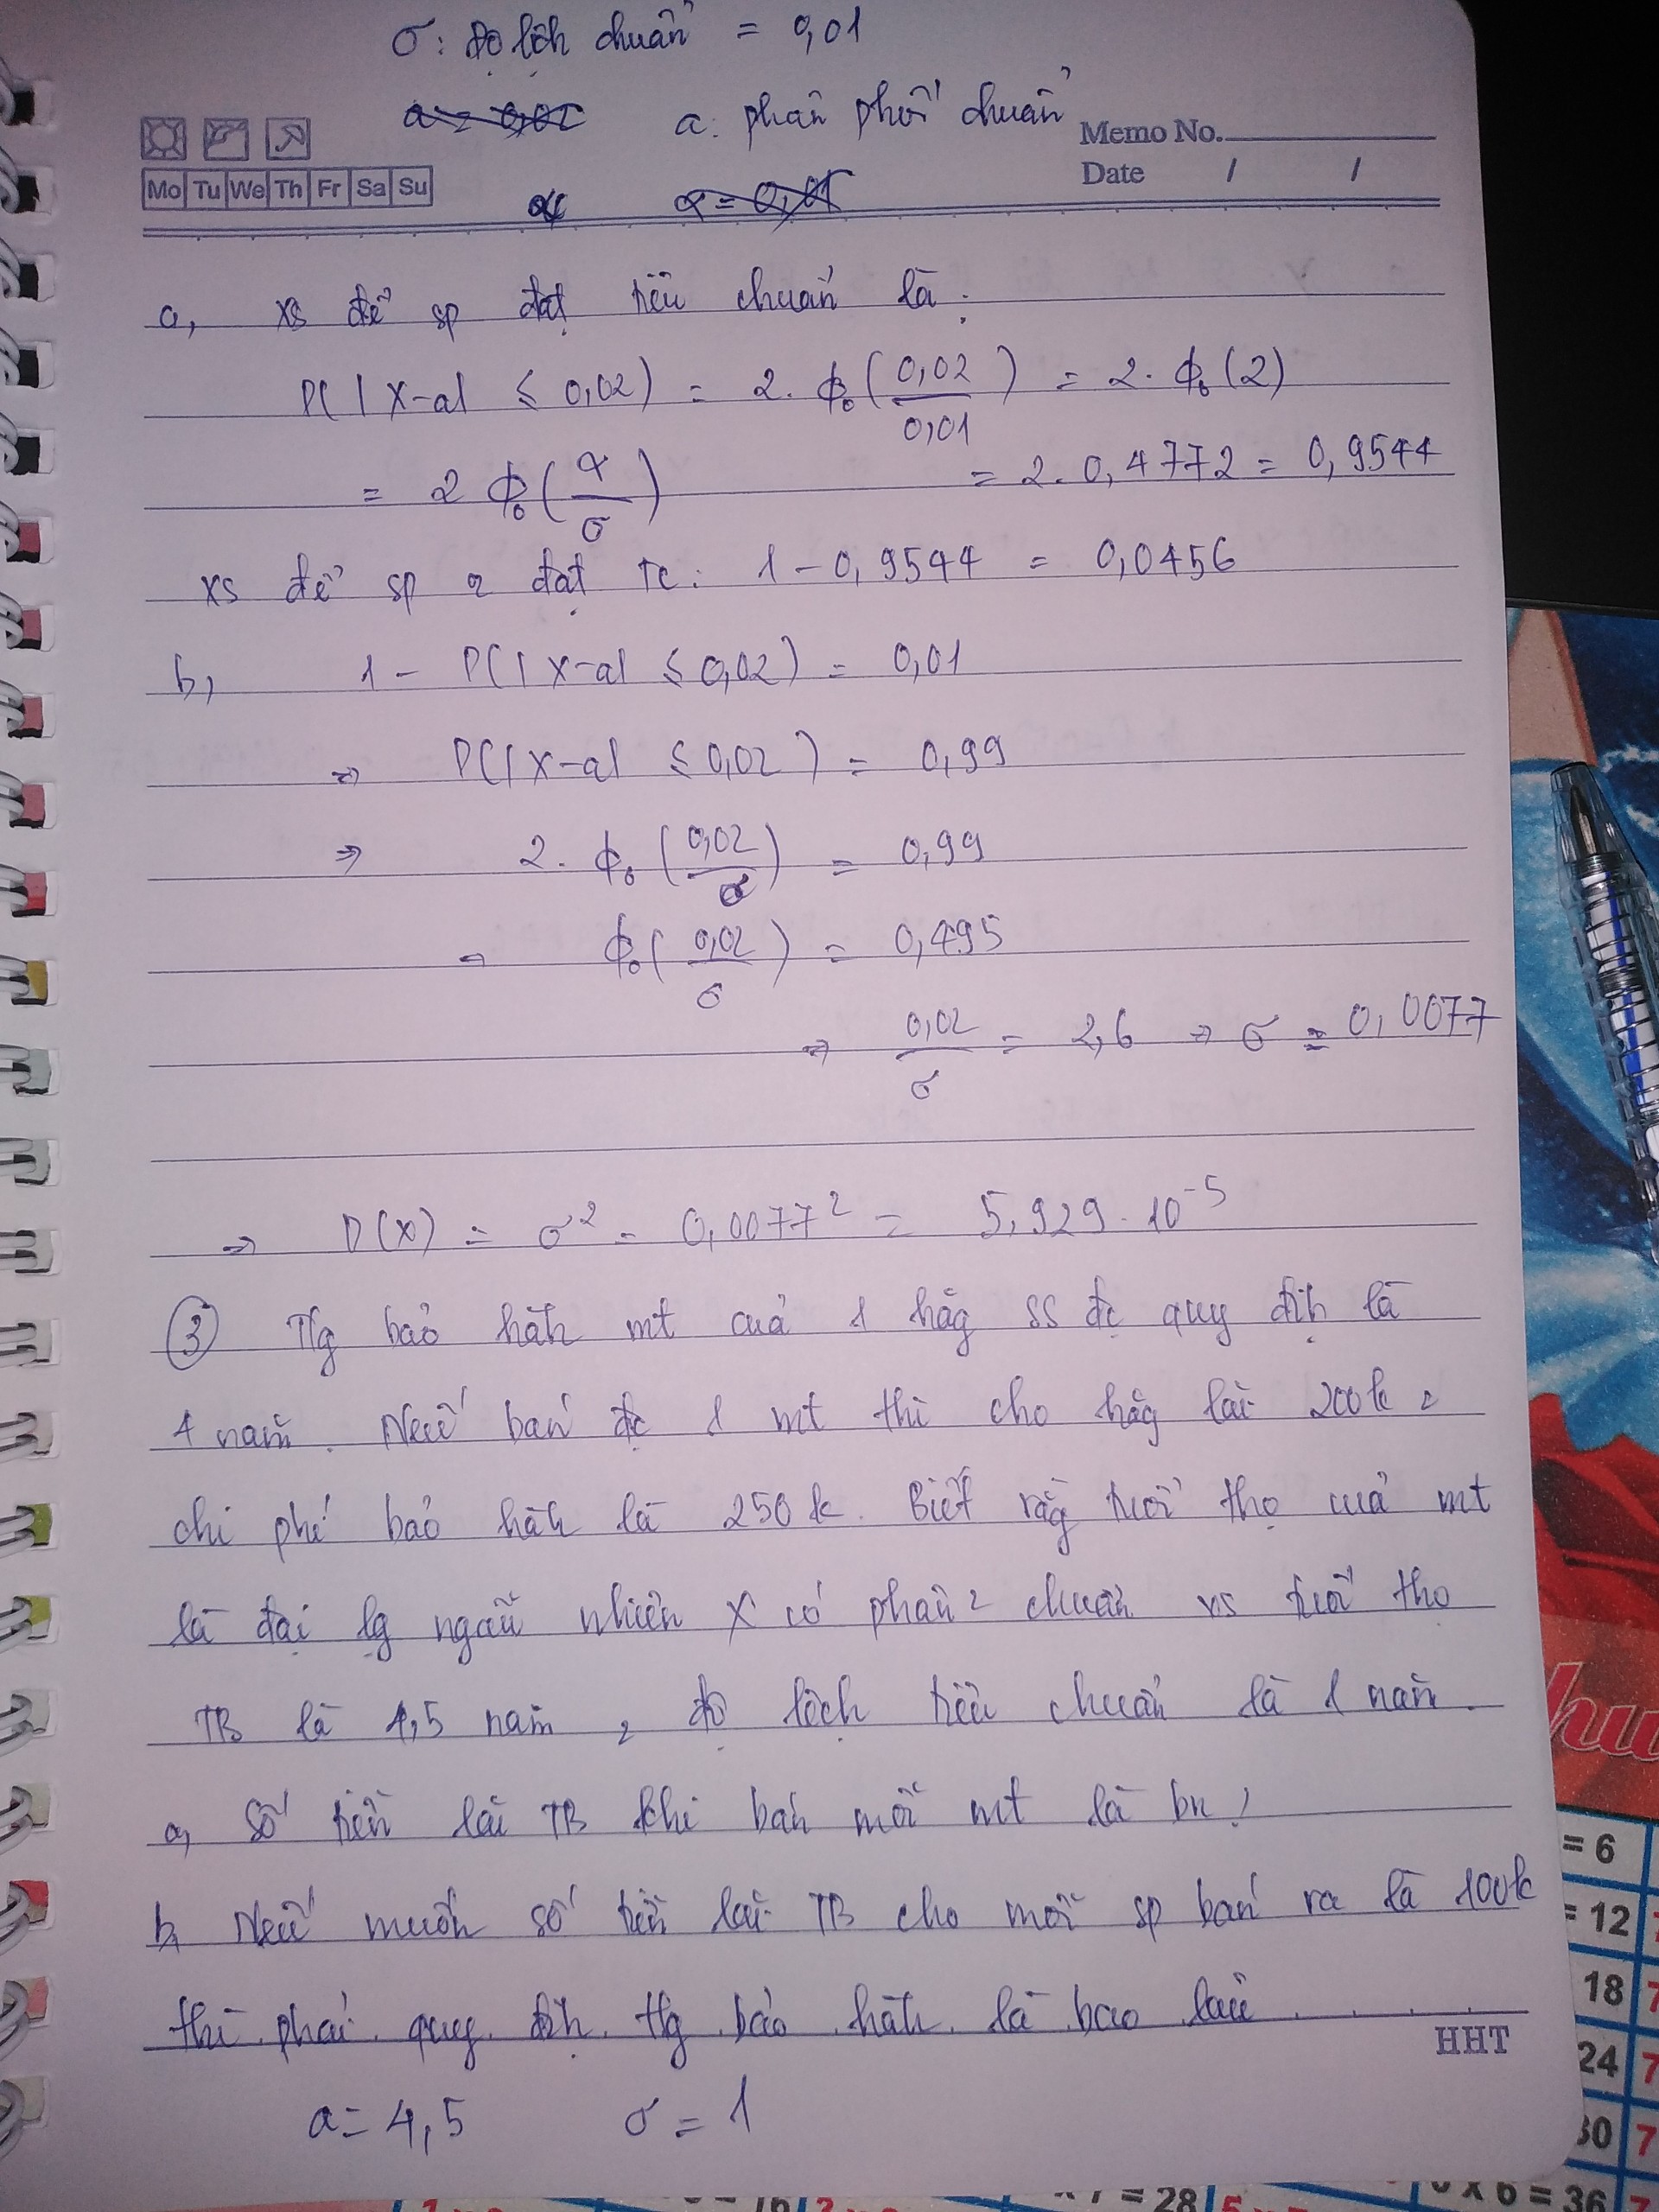 σ: độ lệch chuẩn = 0,01
a: phân phối chuẩn
Memo No.
Mo Tu We Th Fr Sa Su
Date / /
a, xs để sp đạt tiêu chuẩn là:
P(|X-a| ≤ 0,02) = 2. ϕ₀(0,02/0,01) = 2. ϕ₀(2)
= 2 ϕ₀(α/σ) = 2. 0,4772 = 0,9544
xs để sp đạt tc: 1 - 0,9544 = 0,0456
b, 1 - P(|X-a| ≤ 0,02) = 0,01
⇒ P(|X-a| ≤ 0,02) = 0,99
⇒ 2. ϕ₀(0,02/σ) = 0,99
⇒ ϕ₀(0,02/σ) = 0,495
⇒ 0,02/σ = 2,6 ⇒ σ = 0,0077
⇒ D(X) = σ² = 0,0077² = 5,929. 10⁻⁵
③ Tg bảo hàh mt của 1 hãg SS đc quy địh là
4 năm. Nếu bán đc 1 mt thì cho hãg lãi 200k
chi phí bảo hàh là 250k. Biết rằg tuổi thọ của mt
là đại lg ngẫu nhiên X có phân² chuẩn vs tuổi thọ
TB là 4,5 năm, độ lệch tiêu chuẩn là 1 năm.
a, Số tiền lãi TB khi bán mỗi mt là bn?
b, Nếu muốn số tiền lãi TB cho mỗi sp bán ra là 100k
thì phải quy địh tg bảo hàh là bao lâu
HHT
a = 4,5 σ = 1
= 6
= 12
18
24
30
6 x 6 = 36
x 7 = 28